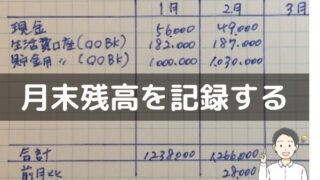 1月 2月 3月
現金 56,000 49,000
生活費口座(〇〇BK) 182,000 187,000
貯金用 〃 (〇〇BK) 1,000,000 1,030,000
月末残高を記録する
合計 1,238,000 1,266,000
前月比 28,000